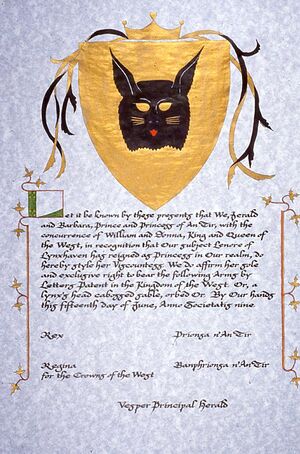 Let it be known by these presents that We, Gerald
and Barbara, Prince and Princess of An Tir, with the
concurrence of William and Donna, King and Queen of
the West, in recognition that Our subject Lenore of
Lynxhaven has reigned as Princess in Our realm, do
hereby style her Viscountess. We do affirm her sole
and exclusive right to bear the following Arms by
Letters Patent in the Kingdom of the West: Or, a
lynx's head cabossed sable, orbed Or. By Our hands
this fifteenth day of June, Anno Societatis nine.
Rex
Prionsa n'An Tir
Regina
Banphrionsa n'An Tir
for the Crowns of the West
Vesper Principal Herald